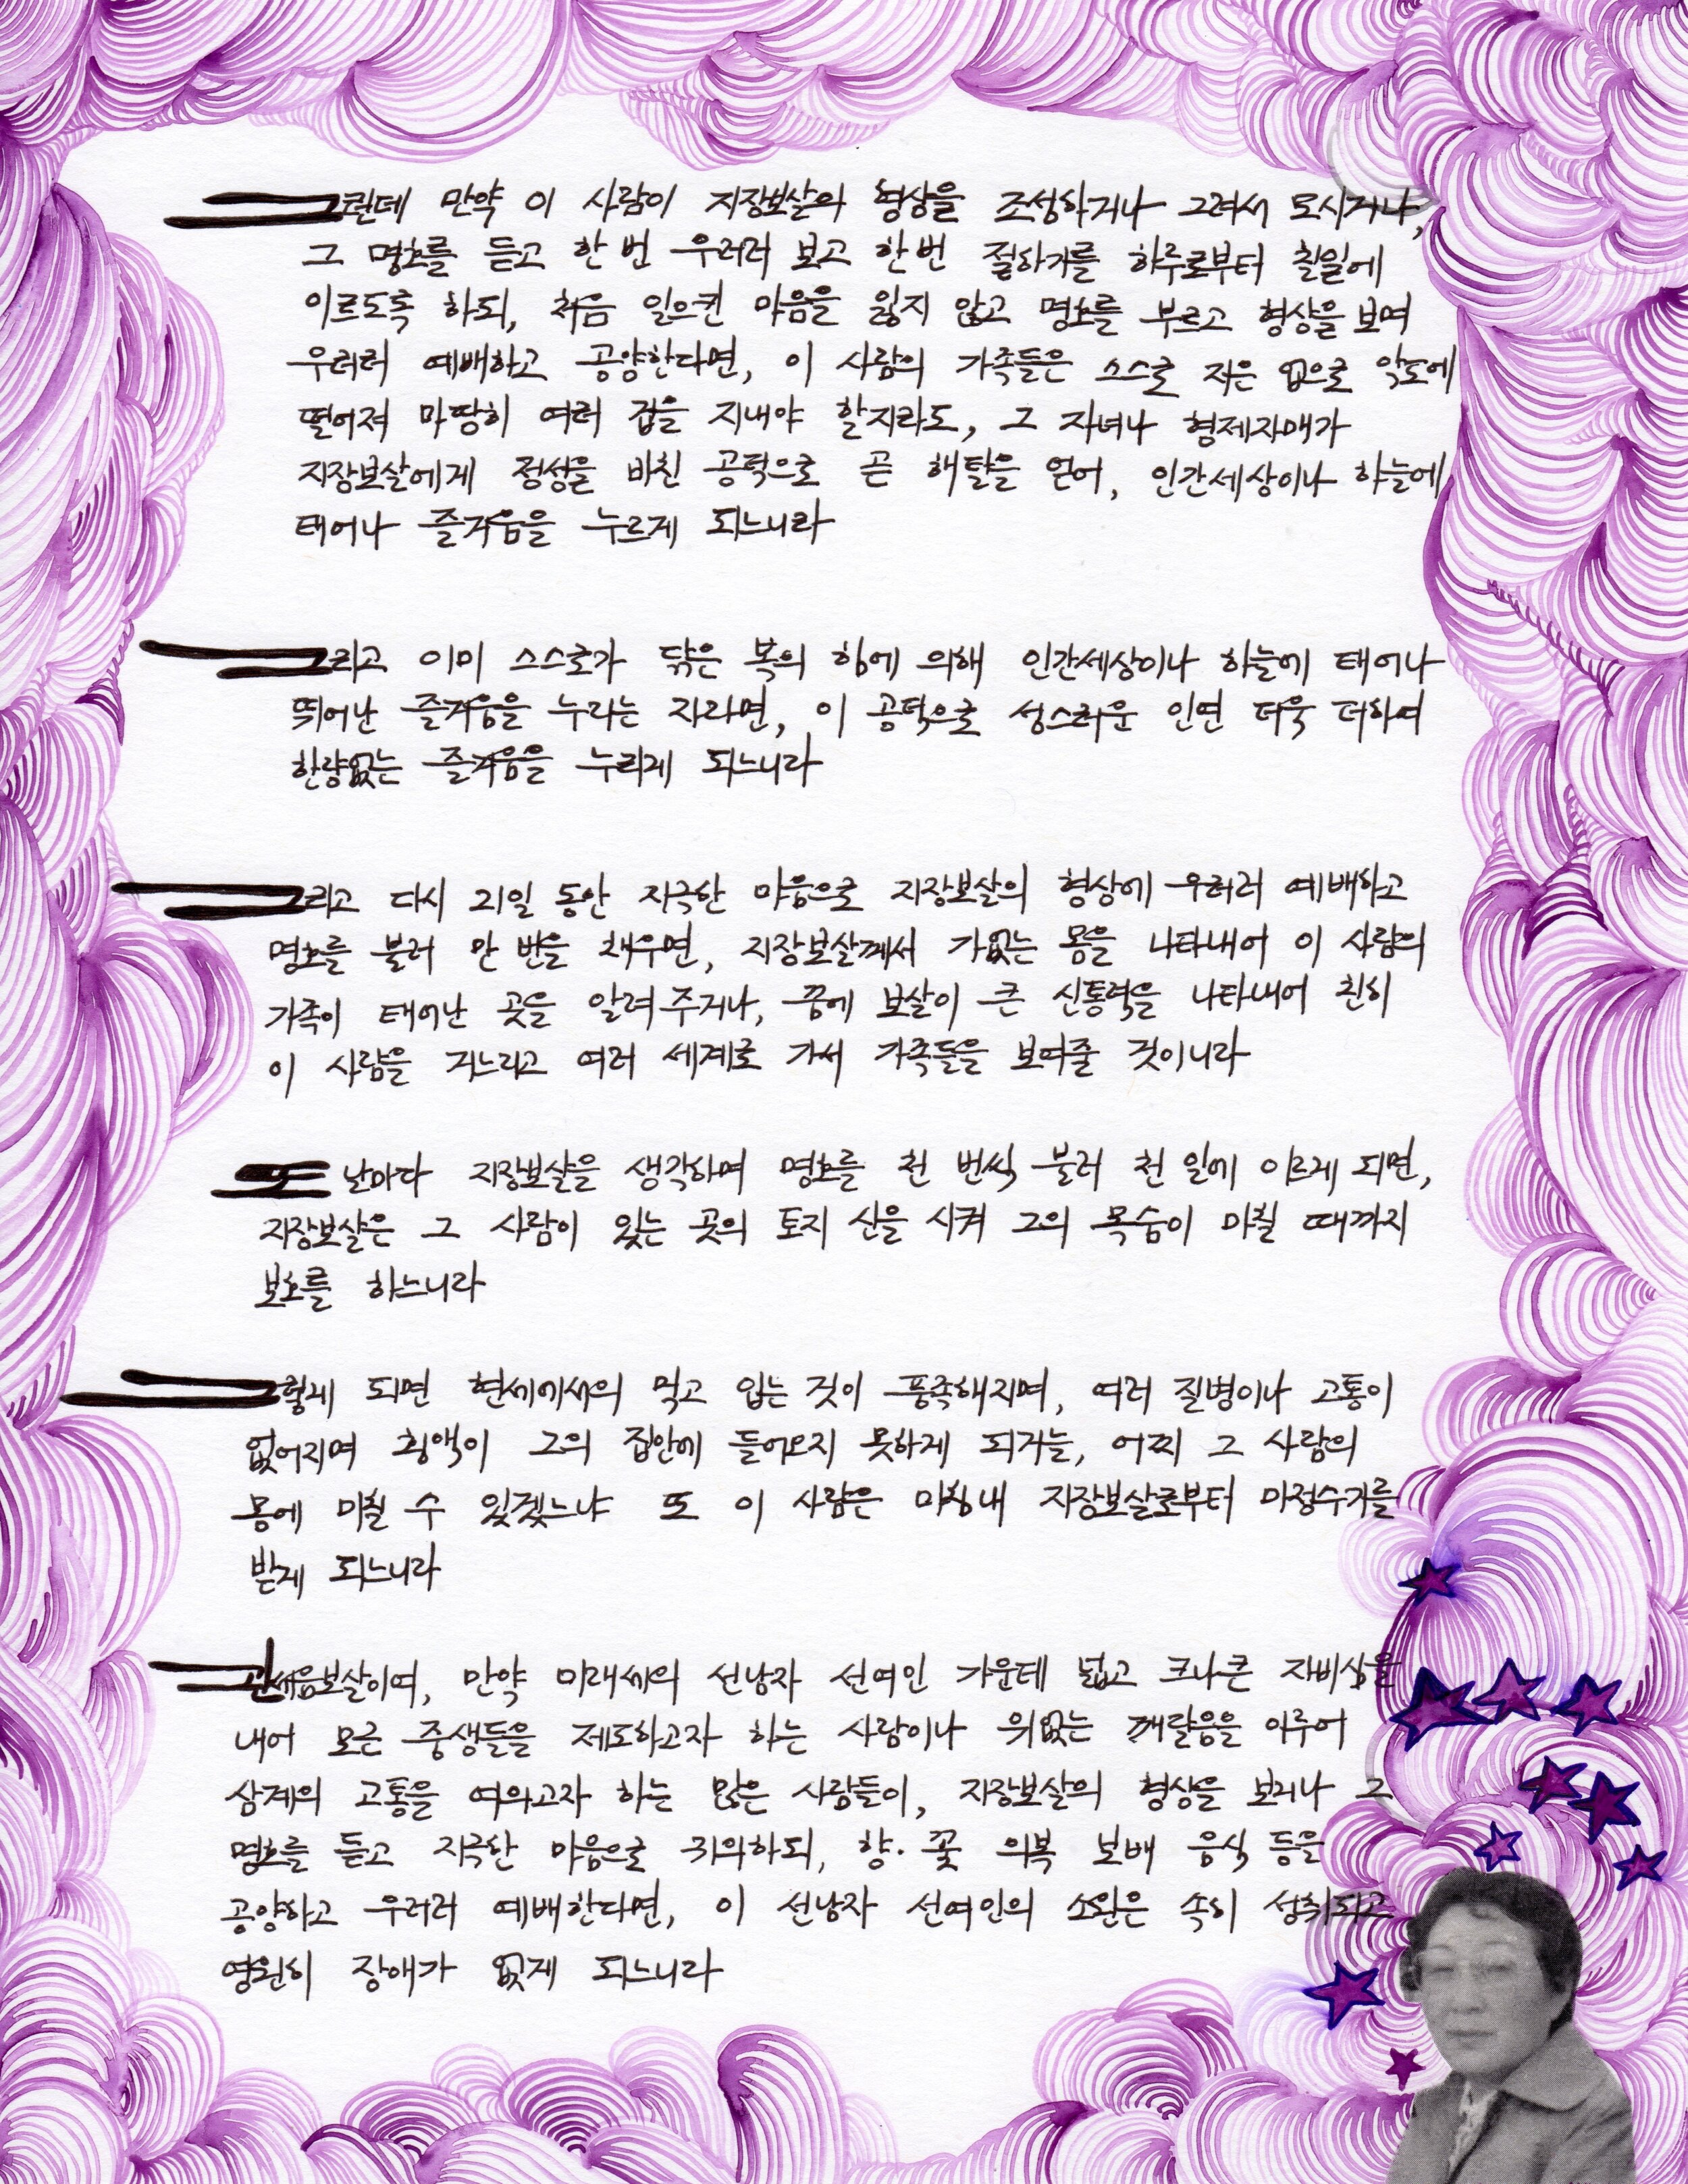 그런데 만약 이 사람이 지장보살의 형상을 조성하거나 그려서 모시거나,
그 명호를 듣고 한 번 우러러 보고 한 번 절하기를 하루로부터 칠일에
이르도록 하되, 처음 일으킨 마음을 잃지 않고 명호를 부르고 형상을 보며
우러러 예배하고 공양한다면, 이 사람의 가족들은 스스로 지은 업으로 악도에
떨어져 마땅히 여러 겁을 지내야 할지라도, 그 자녀나 형제자매가
지장보살에게 정성을 바친 공덕으로 곧 해탈을 얻어, 인간세상이나 하늘에
태어나 즐거움을 누르게 되느니라
그리고 이미 스스로가 닦은 복의 힘에 의해 인간세상이나 하늘에 태어나
뛰어난 즐거움을 누리는 자라면, 이 공덕으로 성스러운 인연 더욱 더하여
한량없는 즐거움을 누리게 되느니라
그리고 다시 21일 동안 지극한 마음으로 지장보살의 형상에 우러러 예배하고
명호를 불러 만 번을 채우면, 지장보살께서 가없는 몸을 나타내어 이 사람의
가족이 태어난 곳을 알려 주거나, 꿈에 보살이 큰 신통력을 나타내어 친히
이 사람을 거느리고 여러 세계로 가서 가족들을 보여줄 것이니라
또 날마다 지장보살을 생각하며 명호를 천 번씩 불러 천 일에 이르게 되면,
지장보살은 그 사람이 있는 곳의 토지 신을 시켜 그의 목숨이 마칠 때까지
보호를 하느니라
그렇게 되면 현세에서의 먹고 입는 것이 풍족해지며, 여러 질병이나 고통이
없어지며 횡액이 그의 집안에 들어오지 못하게 되거늘, 어찌 그 사람의
몸에 미칠 수 있겠느냐 또 이 사람은 마침내 지장보살로부터 마정수기를
받게 되느니라
관세음보살이여, 만약 미래세의 선남자 선여인 가운데 넓고 크나큰 자비심을
내어 모든 중생들을 제도하고자 하는 사람이나 위없는 깨달음을 이루어
삼계의 고통을 여의고자 하는 많은 사람들이, 지장보살의 형상을 보거나 그
명호를 듣고 지극한 마음으로 귀의하되, 향· 꽃 의복 보배 음식 등을
공양하고 우러러 예배한다면, 이 선남자 선여인의 소원은 속히 성취되고
영원히 장애가 없게 되느니라